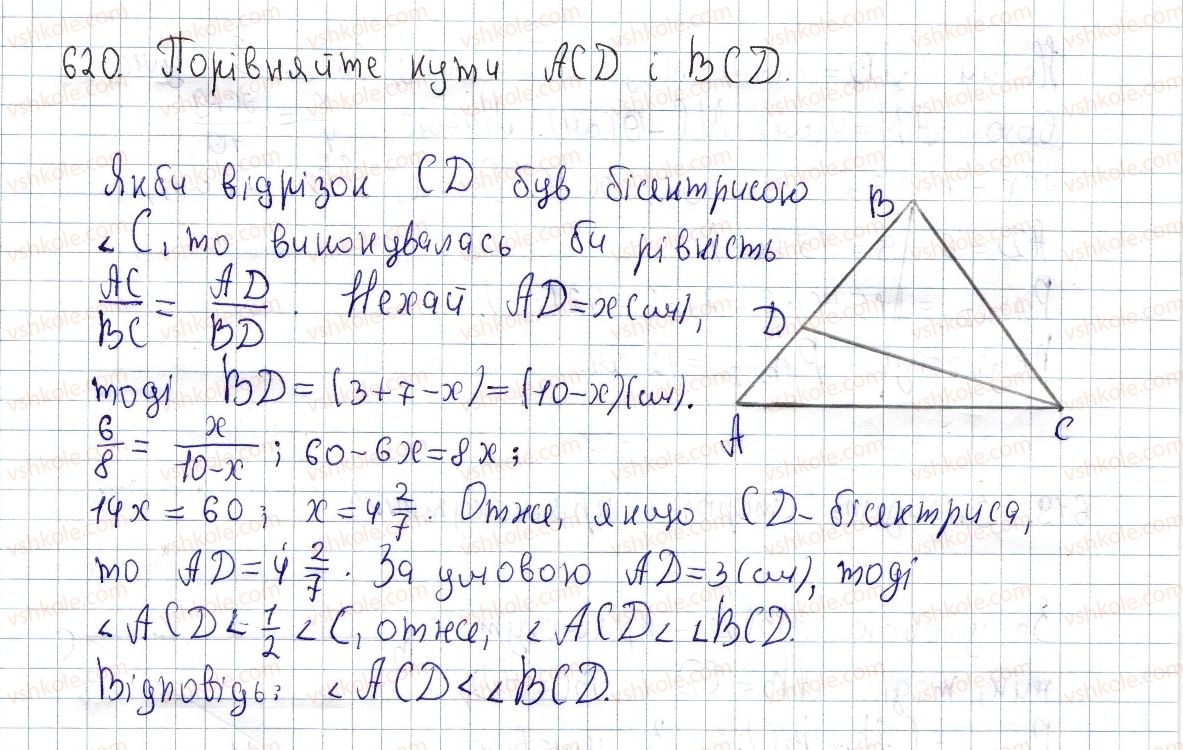 620. Порівняйте кути ACD і BCD.
Якби відрізок CD був бісектрисою
∠C, то виконувалась би рівність
AC/BC = AD/BD. Нехай AD = x (см),
тоді BD = (3+7-x) = (10-x)(см).
6/8 = x/10-x; 60-6x=8x;
14x = 60; x = 4 2/7. Отже, якщо CD - бісектриса,
то AD = 4 2/7. За умовою AD = 3 (см), тоді
∠ACD < 1/2 ∠C, отже, ∠ACD < ∠BCD.
Відповідь: ∠ACD < ∠BCD.
B
D
A
C
vshkole.com